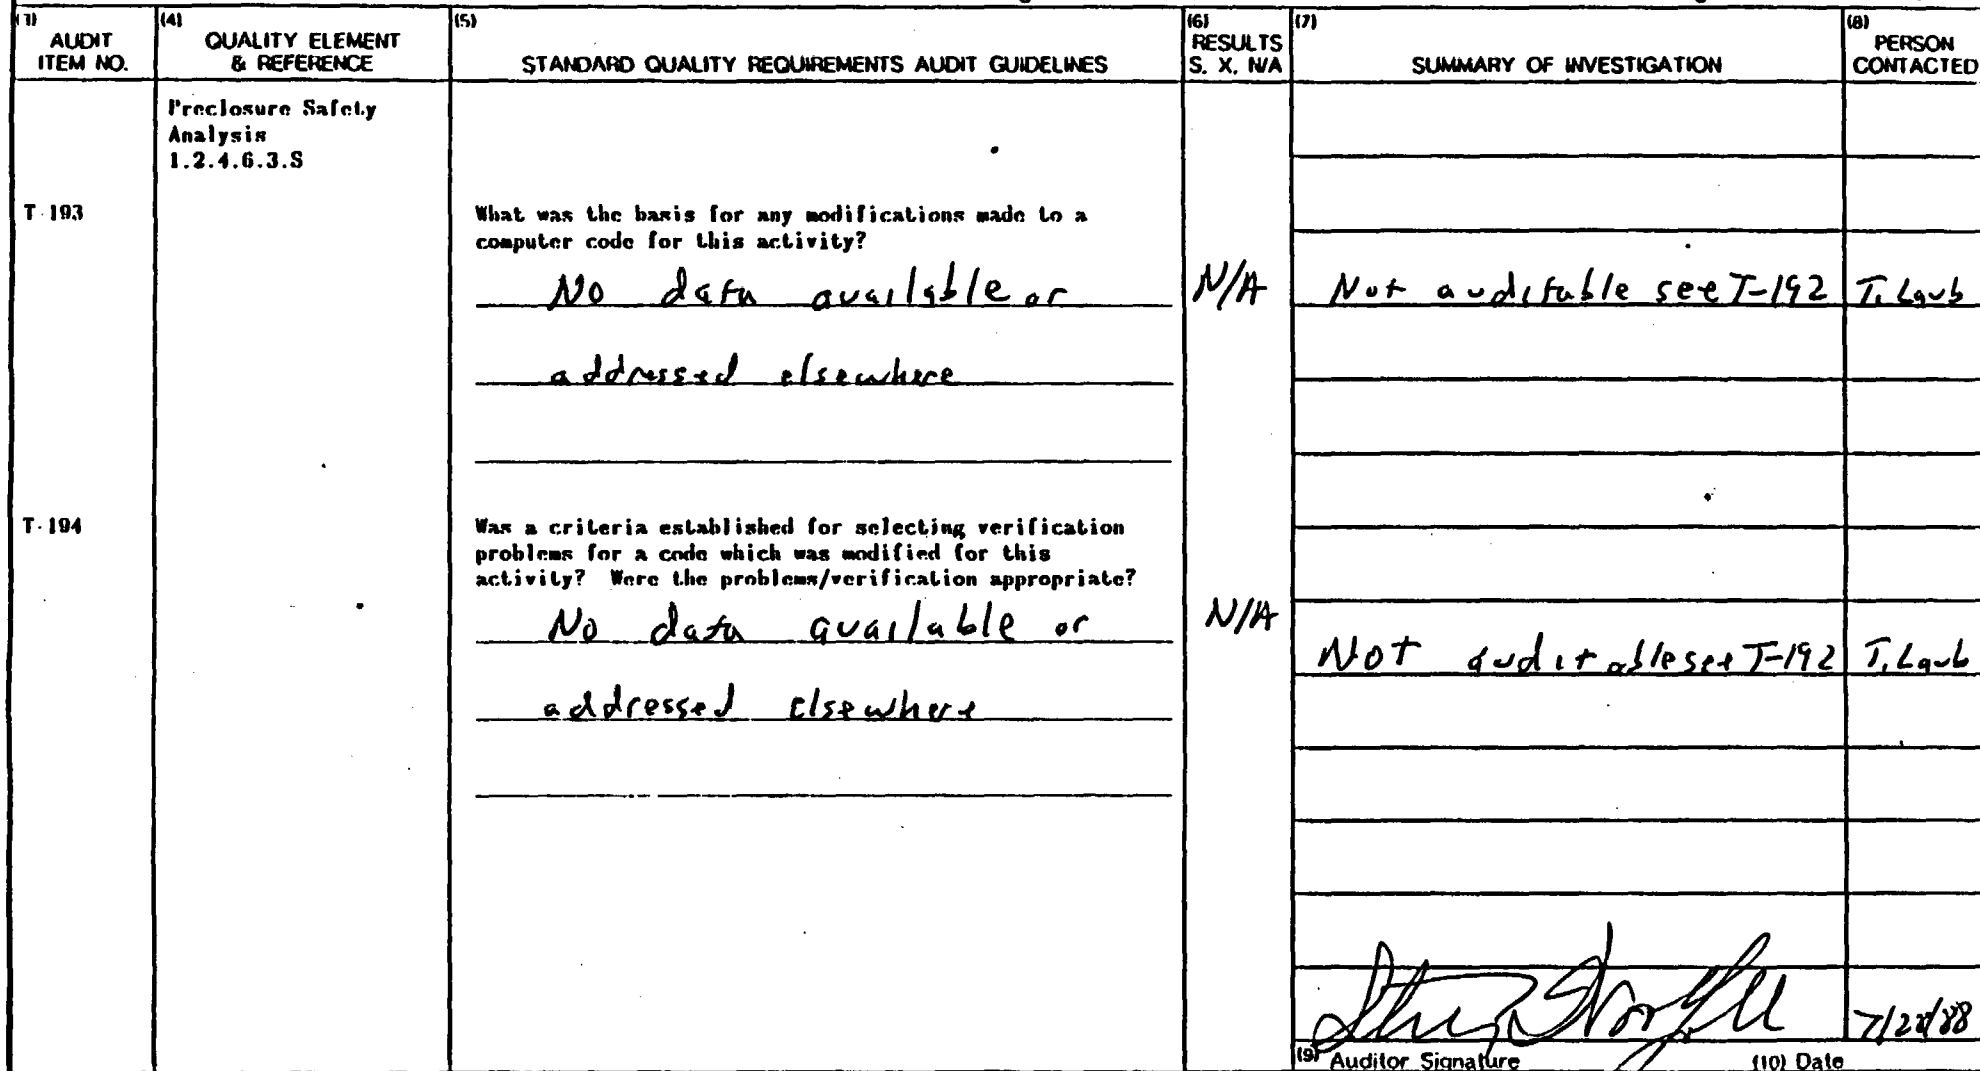 (3) AUDIT ITEM NO.
(4) QUALITY ELEMENT & REFERENCE
(5) STANDARD QUALITY REQUIREMENTS AUDIT GUIDELINES
(6) RESULTS S. X. N/A
(7) SUMMARY OF INVESTIGATION
(8) PERSON CONTACTED
Preclosure Safety
Analysis
1.2.4.6.3.S
T-193
What was the basis for any modifications made to a
computer code for this activity?
No data available or
addressed elsewhere
N/A
Not auditable see T-192
T. Laub
T-194
Was a criteria established for selecting verification
problems for a code which was modified for this
activity? Were the problems/verification appropriate?
No data available or
addressed elsewhere
N/A
Not auditable see T-192
T. Laub
(9) Auditor Signature
(10) Date